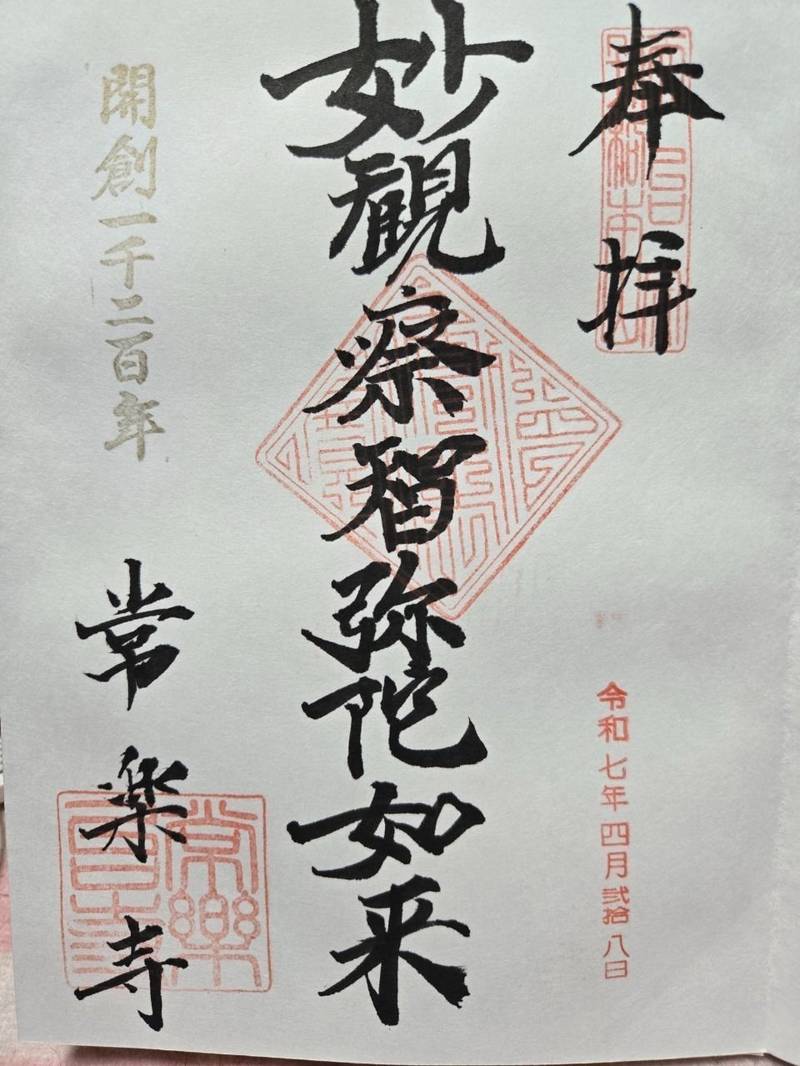 奉拝
令和七年四月弐拾八日
妙観察智弥陀如来
開創一千二百年
常楽寺